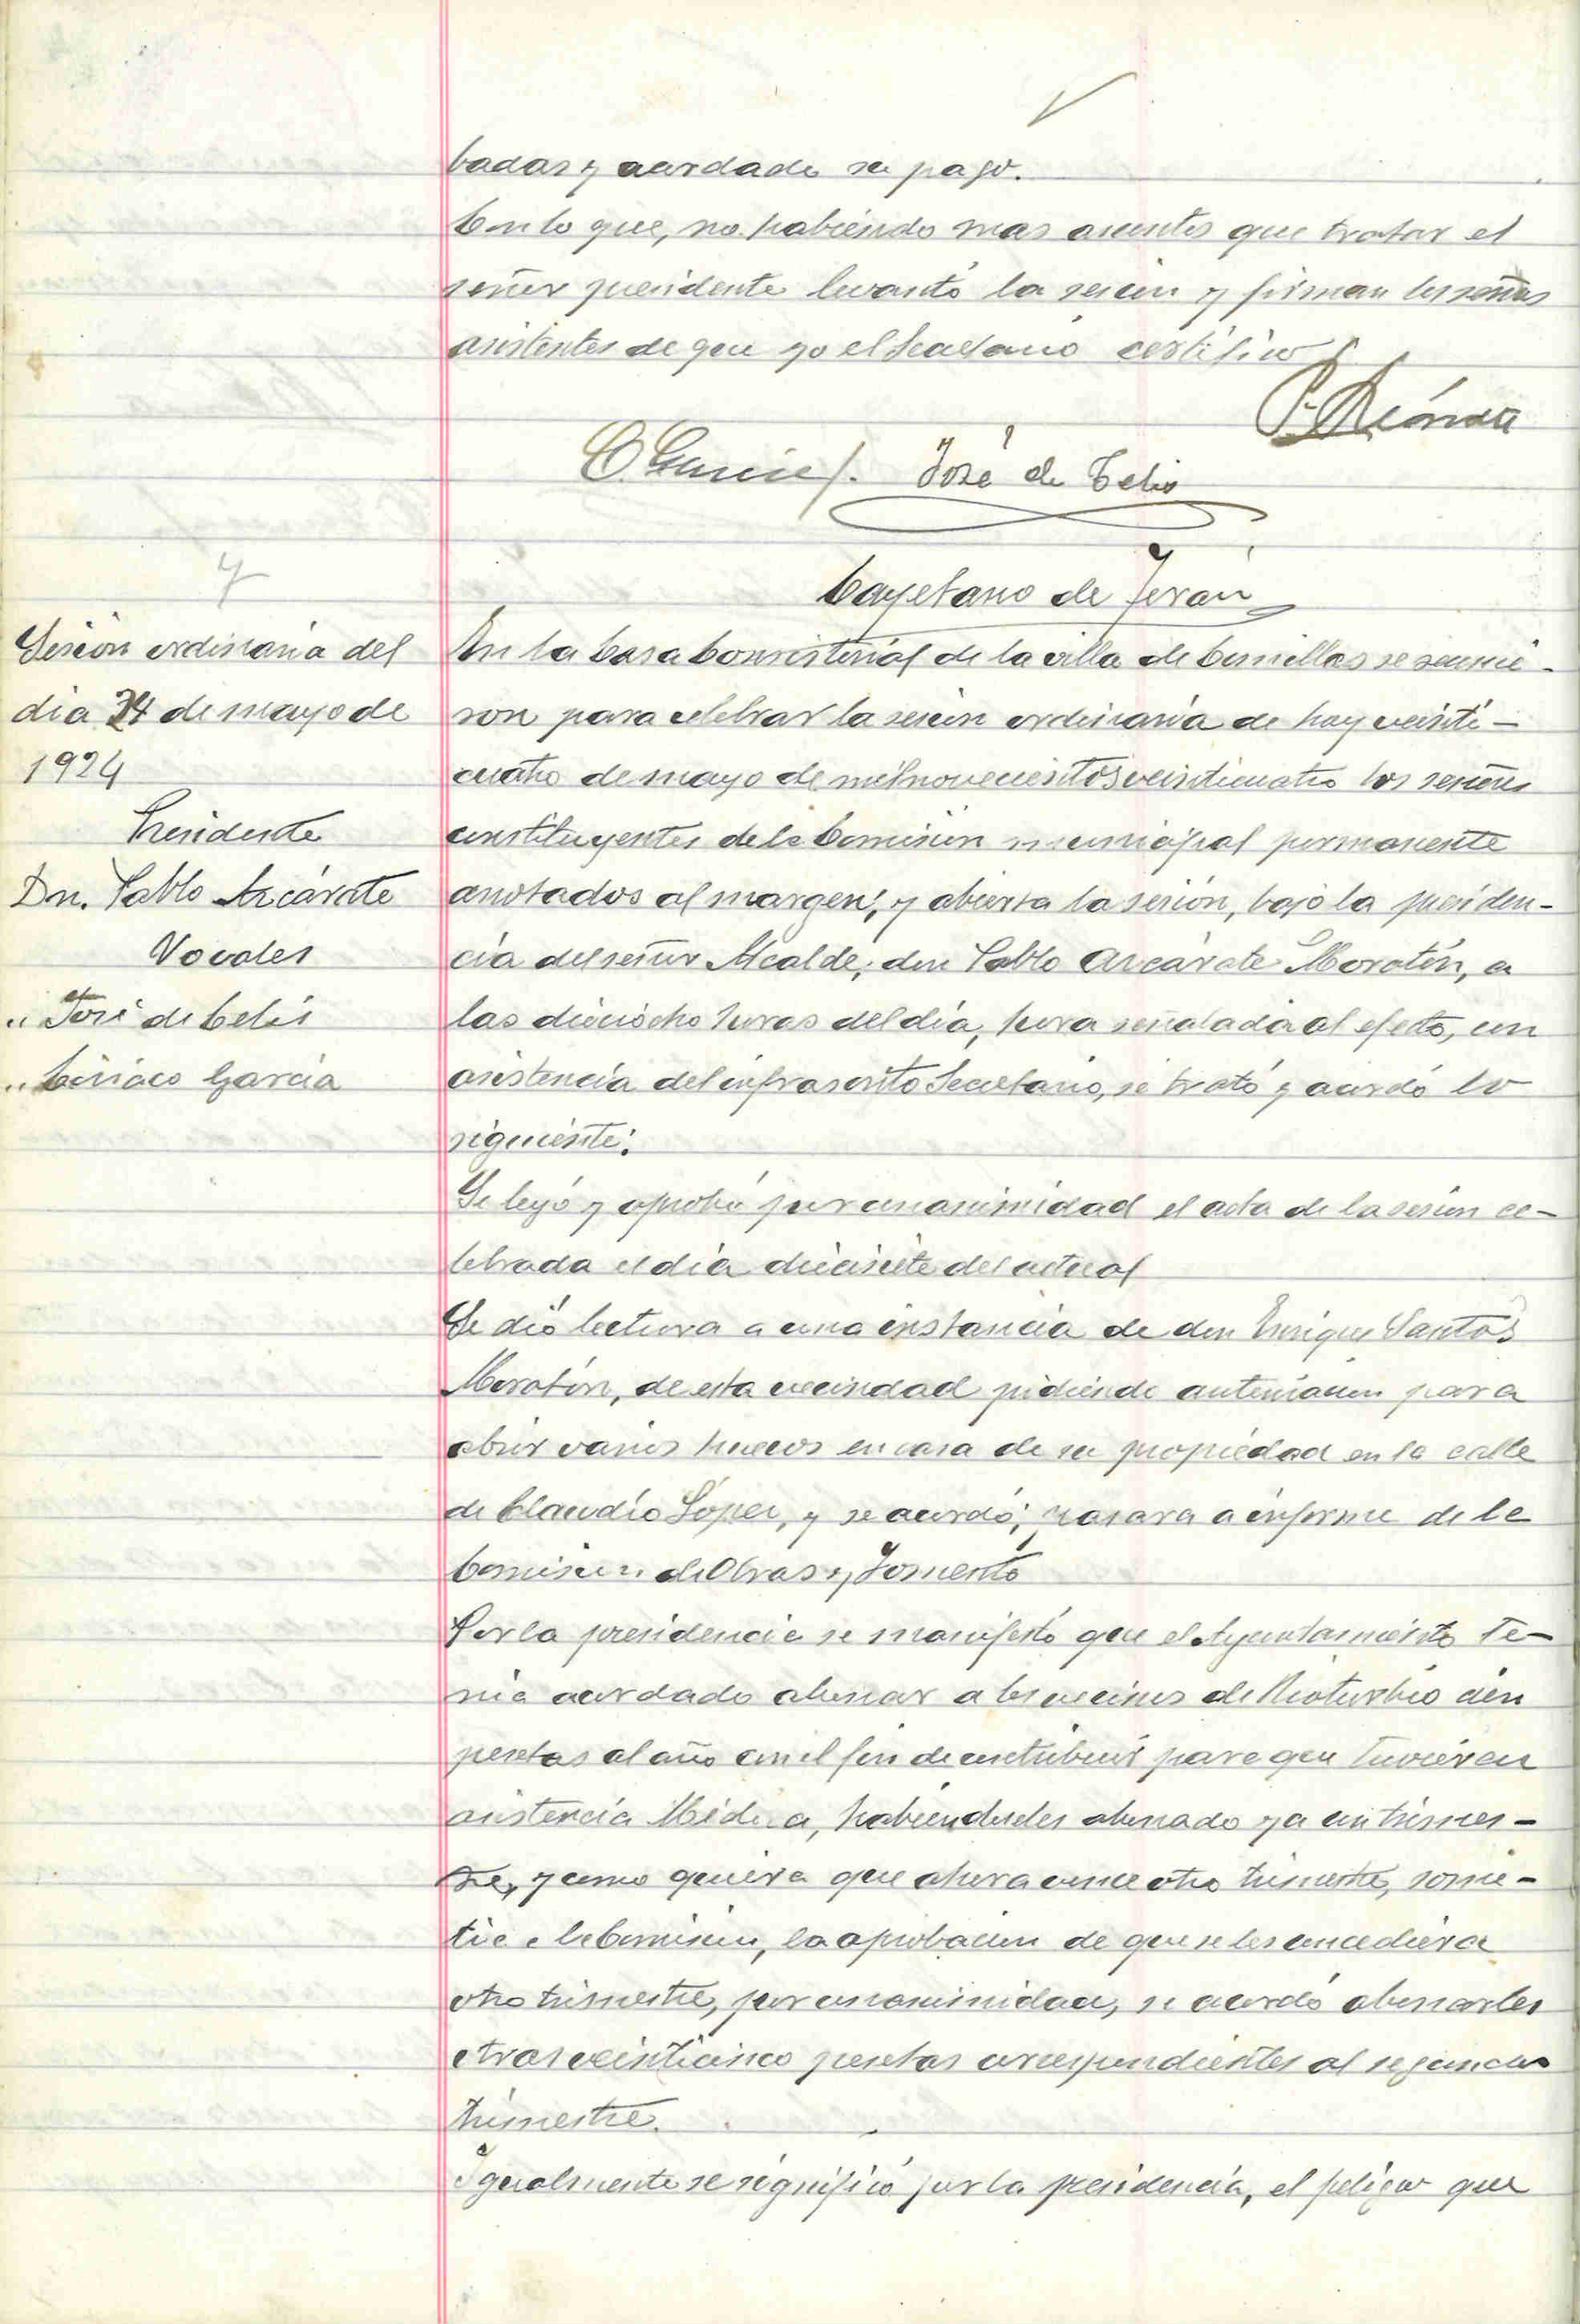 badas y acordado su pago.
Con lo que, no habiendo mas asuntos que tratar el
señor presidente levantó la sesión y firman los señores
asistentes de que yo el Secretario certifico
C. García José de Celis
Cayetano de Terán
Sesión ordinaria del
dia 24 de mayo de
1924
Presidente
Dn. Pablo Azcárate
Vocales
" José de Celis
" Ciriaco García
En la Casa Consistorial de la villa de Comillas se reunie-
ron para celebrar la sesión ordinaria de hoy veinti-
cuatro de mayo de mil novecientos veinticuatro los señores
constituyentes de la Comisión municipal permanente
anotados al margen, y abierta la sesión, bajo la presiden-
cia del señor Alcalde, don Pablo Azcárate Moratón, a
las dieciocho horas del día, hora señalada al efecto, con
asistencia del infrascrito Secretario, se trató y acordó lo
siguiente:
Se leyó y aprobó por unanimidad el acta de la sesión ce-
lebrada el día diecisiete del actual
Se dió lectura a una instancia de don Enrique Santos
Moratón, de esta vecindad pidiendo autorización para
abrir varios huecos en casa de su propiedad en la calle
de Claudio López, y se acordó; pasara a informe de la
Comisión de Obras y Fomento
Por la presidencia se manifestó que el Ayuntamiento te-
nia acordado abonar a los vecinos de Rioturbio cien
pesetas al año con el fin de contribuir para que tuvieran
asistencia Médica, habiendoles abonado ya un trimes-
tre, y como quiera que ahora vence otro trimestre, some-
tia a la Comisión, la aprobación de que se les concediera
otro trimestre, por unanimidad, se acordó abonarles
otras veinticinco pesetas correspondientes al segundo
trimestre.
Igualmente se significó por la presidencia, el peligro que